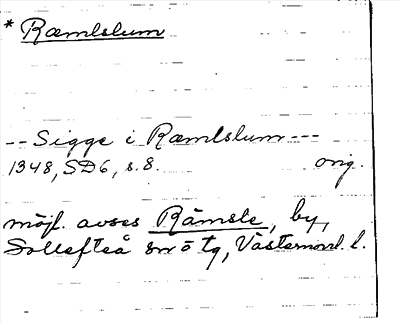 * Ræmlslum
-- Sigge i Ræmlslum ---
1348, SD6, s. 8. orig.
möjl. avses Rämsle, by,
Sollefteå sn o tg, Västernorrl. l.